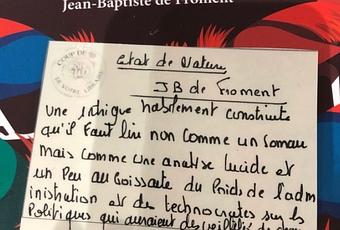 Jean-Baptiste de Froment
COUP DE
DE VOTRE LIBRAIRE
Etat de Nature
JB de Froment
une intrigue habilement construite
qu'il faut lire non comme un roman
mais comme une analyse lucide et
un peu au vitriol du Poids de l'adm
inistration et des technocrates sur les
Politiques qui auraient des